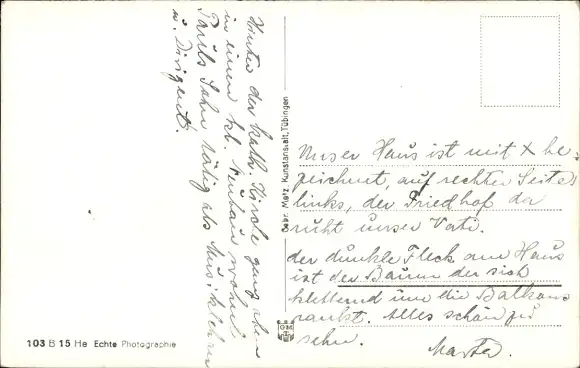 Hinter der kath. Kirche ganz oben
in einem kl. Neubau wohnt
Pauls Sohn tätig als Musiklehrer
u. Dirigent.
Gebr. Metz, Kunstanstalt, Tübingen
Unser Haus ist mit x be-
zeichnet, auf rechter Seite
links, der Friedhof da
ruht unser Vati.
der dunkle Fleck am Haus
ist der Baum der sich
kletternd um die Balkone
rankt. Alles schön zu
sehn. Marta.
103 B 15 He Echte Photographie